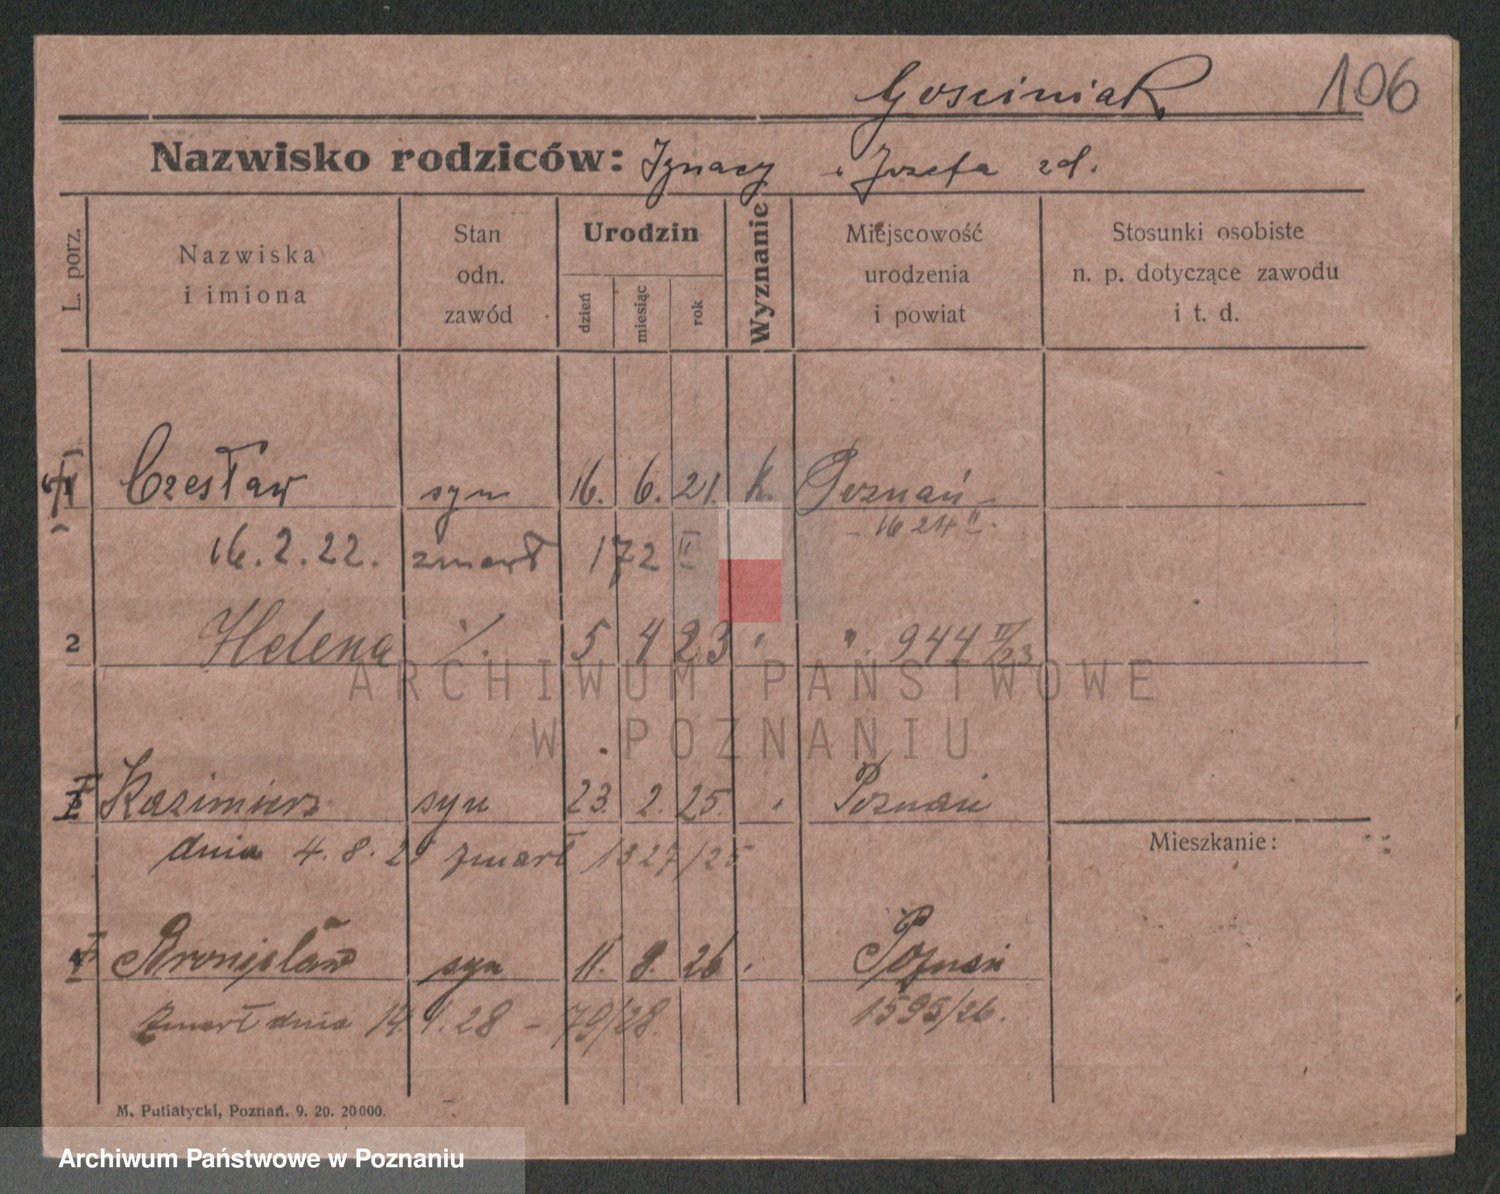 Gościniak 106
Nazwisko rodziców: Ignacy i Józefa zd.
L. porz.
Nazwiska
i imiona
Stan
odn.
zawód
Urodzin
dzień
miesiąc
rok
Wyznanie
Miejscowość
urodzenia
i powiat
Stosunki osobiste
n. p. dotyczące zawodu
i t. d.
1 Czesław syn 16. 6. 21. k. Poznań
1624 II
16.2.22. zmarł 172 II
2 Helena /. 5 4 23 " " 944 II/23
ARCHIWUM PAŃSTWOWE
W POZNANIU
3 Kazimierz syn 23. 2. 25. " Poznań
dnia 4.8.25 zmarł 1327/25
Mieszkanie:
4 Bronisław syn 11. 8. 26 " Poznań
1595/26.
zmarł dnia 14.1.28 – 79/28
M. Putiatycki, Poznań. 9. 20. 20000.
Archiwum Państwowe w Poznaniu